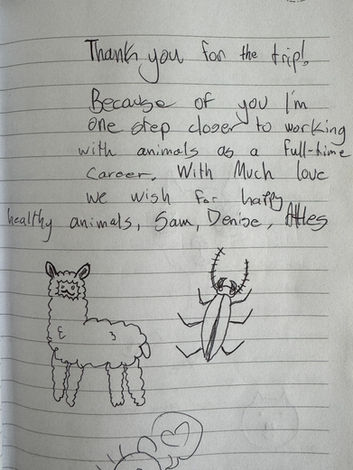 Thank you for the trip!
Because of you I'm
one step closer to working
with animals as a full-time
career. With Much love
we wish for happy
healthy animals, Sam, Denise,